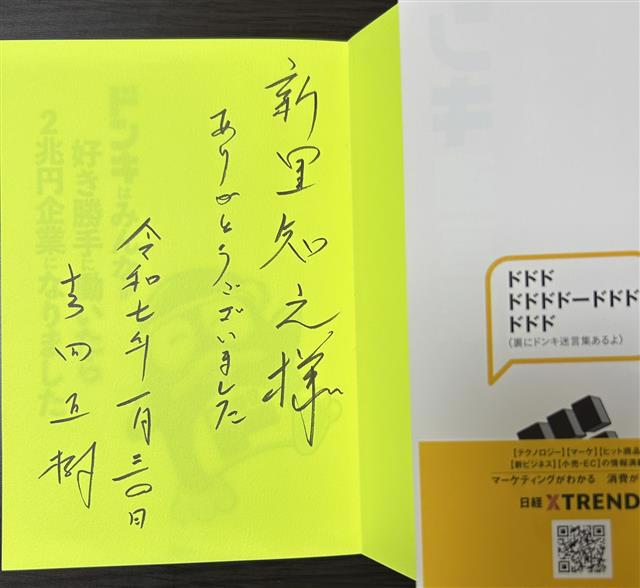 新里知之様
ありがとうございました
令和七年一月三〇日
吉田直樹
ドンキはみ
好き勝手に働いた。
2兆円企業になりました
ンキ
ドドド
ドドドドードドド
ドドド
(裏にドンキ迷言集あるよ)
【テクノロジー】【マーケ】【ヒット商品
【新ビジネス】【小売・EC】の情報満載
マーケティングがわかる 消費が
日経 XTREND